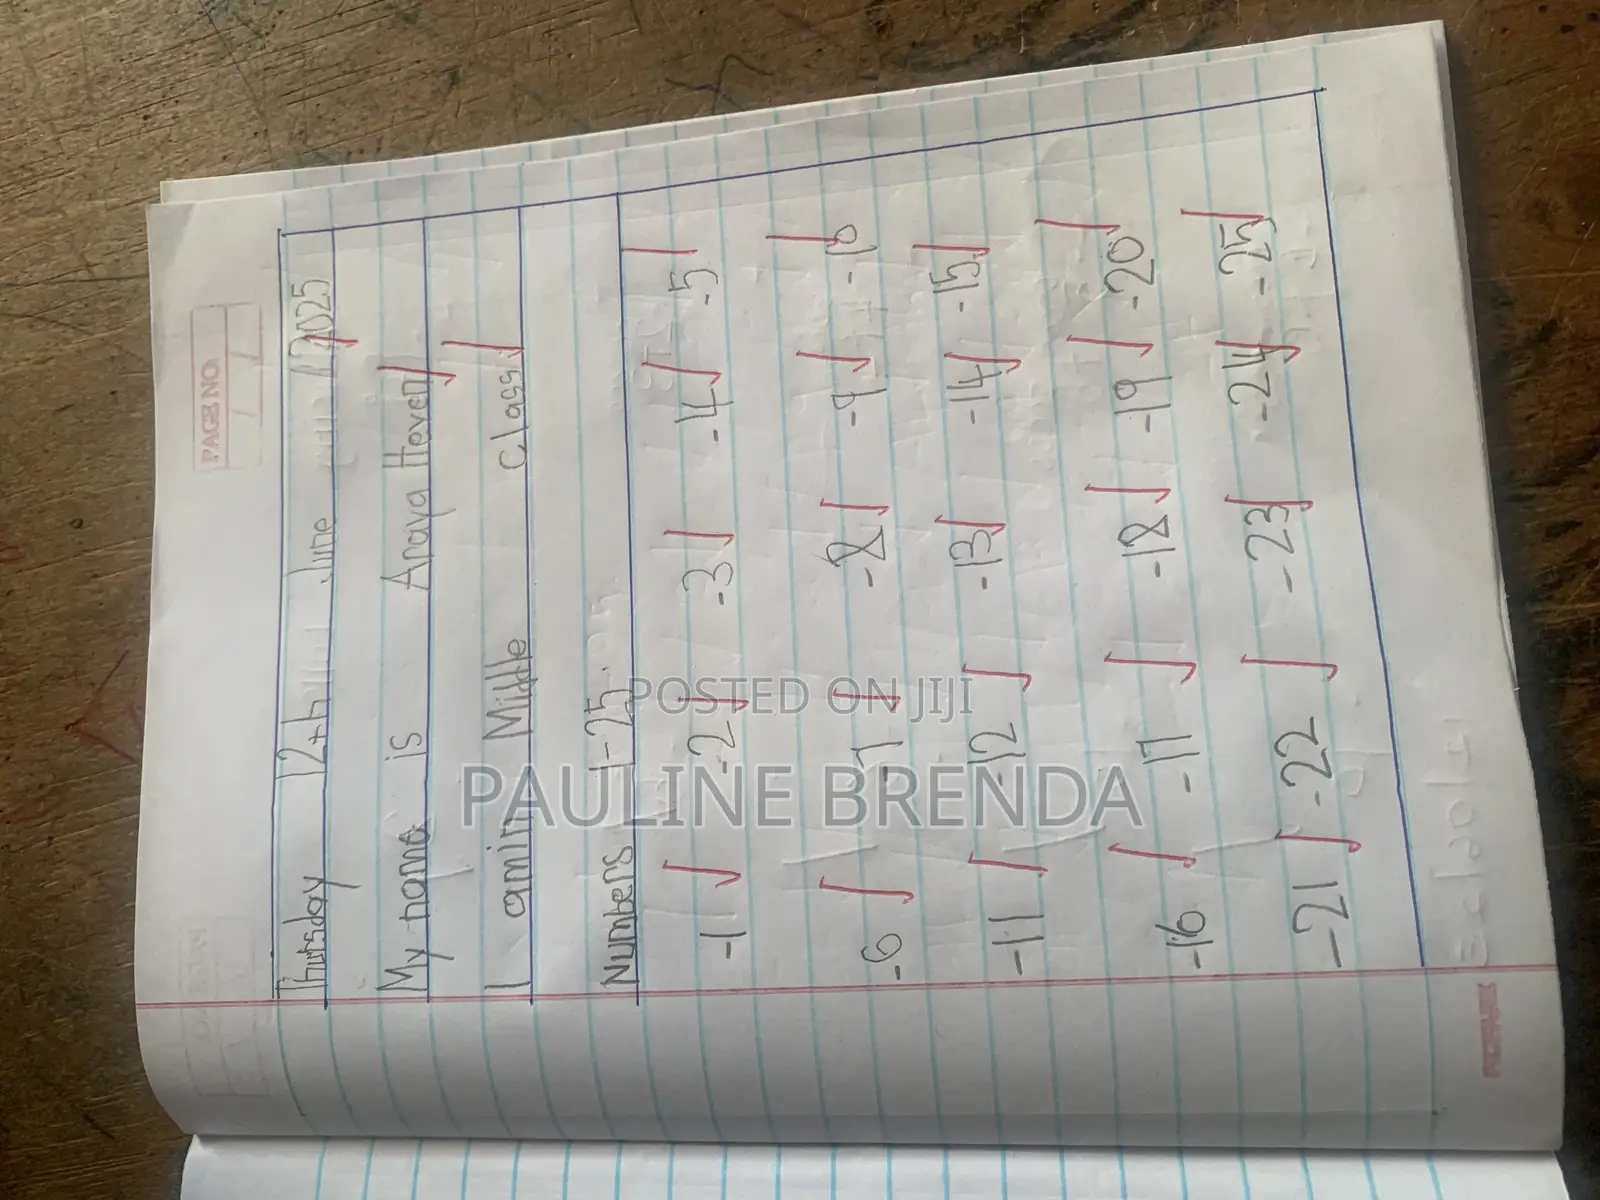 PAGE NO.
Thursday 12th June 2025
My name is Araya Heven
I amin Middle Class
Numbers 1-25.
-1 -2 -3 -4 -5
-6 -7 -8 -9 -10
-11 -12 -13 -14 -15
-16 -17 -18 -19 -20
-21 -22 -23 -24 -25
POSTED ON JIJI
PAULINE BRENDA